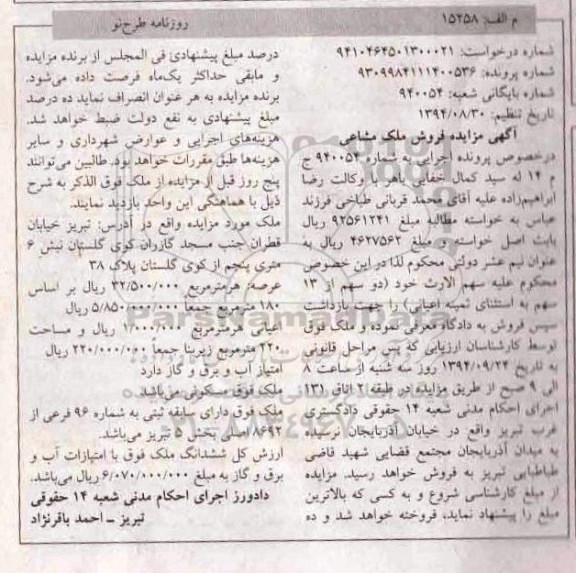 م الف: ۱۵۲۵۸
روزنامه طرح‌نو
شماره درخواست: ۹۴۱۰۴۶۴۵۰۱۳۰۰۰۲۱
شماره پرونده: ۹۳۰۹۹۸۴۱۱۱۴۰۰۵۳۶
شماره بایگانی شعبه: ۹۴۰۰۵۴
تاریخ تنظیم: ۱۳۹۴/۰۸/۳۰
آگهی مزایده فروش ملک مشاعی
درخصوص پرونده اجرایی به شماره ۹۴۰۰۵۴ ج
م ۱۴ له سید کمال خفایی باهر با وکالت رضا
ابراهیم‌زاده علیه آقای محمد قربانی طباخی فرزند
عباس به خواسته مطالبه مبلغ ۹۲۵۶۱۲۴۱ ریال
بابت اصل خواسته و مبلغ ۴۶۲۷۵۶۲ ریال به
عنوان نیم عشر دولتی محکوم لذا در این خصوص
محکوم علیه سهم الارث خود (دو سهم از ۱۳
سهم به استثنای ثمینه اعیانی) را جهت بازداشت
سپس فروش به دادگاه معرفی نموده و ملک فوق
توسط کارشناسان ارزیابی که پس مراحل قانونی
به تاریخ ۱۳۹۴/۰۹/۲۴ روز سه شنبه از ساعت ۸
الی ۹ صبح از طریق مزایده در طبقه ۲ اتاق ۱۳۱
اجرای احکام مدنی شعبه ۱۴ حقوقی دادگستری
غرب تبریز واقع در خیابان آذربایجان نرسیده
به میدان آذربایجان مجتمع قضایی شهید قاضی
طباطبایی تبریز به فروش خواهد رسید. مزایده
از مبلغ کارشناسی شروع و به کسی که بالاترین
مبلغ را پیشنهاد نماید، فروخته خواهد شد و ده
درصد مبلغ پیشنهادی فی المجلس از برنده مزایده
و مابقی حداکثر یک‌ماه فرصت داده می‌شود.
برنده مزایده به هر عنوان انصراف نماید ده درصد
مبلغ پیشنهادی به نفع دولت ضبط خواهد شد.
هزینه‌های اجرایی و عوارض شهرداری و سایر
هزینه‌ها طبق مقررات خواهد بود. طالبین می‌توانند
پنج روز قبل از مزایده از ملک فوق الذکر به شرح
ذیل با هماهنگی این واحد بازدید نمایند.
ملک مورد مزایده واقع در آدرس: تبریز خیابان
قطران جنب مسجد گازران کوی گلستان نبش ۶
متری پنجم از کوی گلستان پلاک ۳۸
عرصه: هرمترمربع ۳۲/۵۰۰/۰۰۰ ریال بر اساس
۱۸۰ مترمربع جمعاً ۵/۸۵۰/۰۰۰/۰۰۰ ریال
اعیانی هرمترمربع ۱/۰۰۰/۰۰۰ ریال و مساحت
۲۲۰ مترمربع زیربنا جمعاً ۲۲۰/۰۰۰/۰۰۰ ریال
امتیاز آب و برق و گاز دارد
ملک فوق مسکونی می‌باشد
ملک فوق دارای سابقه ثبتی به شماره ۹۶ فرعی از
۸۶۹۲ اصلی بخش ۵ تبریز می‌باشد.
ارزش کل ششدانگ ملک فوق با امتیازات آب و
برق و گاز به مبلغ ۶/۰۷۰/۰۰۰/۰۰۰ ریال می‌باشد.
دادورز اجرای احکام مدنی شعبه ۱۴ حقوقی
تبریز ــ احمد باقرنژاد
ParsNamadData